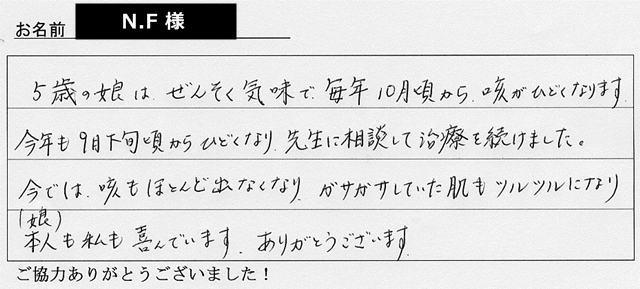 お名前 N.F 様
5歳の娘は、ぜんそく気味で、毎年10月頃から、咳がひどくなります。
今年も9月下旬頃からひどくなり、先生に相談して治療を続けました。
今では、咳もほとんど出なくなり、ガサガサしていた肌もツルツルになり
(娘)
本人も私も喜んでいます。ありがとうございます。
ご協力ありがとうございました！